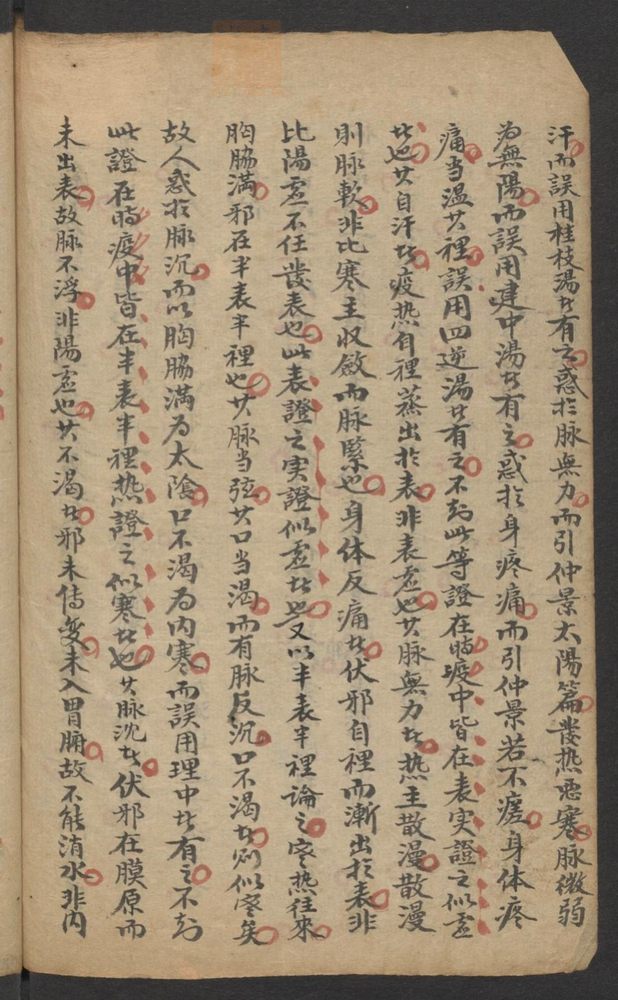 汗而誤用桂枝湯者有之惑於脉無力而引仲景太陽篇發热惡寒脉微弱
为無陽而誤用建中湯者有之惑於身疼痛而引仲景若不瘥身体疼
痛当温其裡誤用四逆湯者有之不知此等證在時疫中皆在表实證之似虚
者也其自汗者疫热自裡蒸出於表非表虚也其脉無力者热主散漫散漫
則脉軟非比寒主收斂而脉緊也身体反痛者伏邪自裡而漸出於表非
比陽虚不任發表也此表證之实證似虚者也又以半表半裡論之寒热往來
胸脇滿邪在半表半裡也其脉当弦其口当渴而有脉反沉口不渴者則似寒矣
故人惑於脉沉而以胸脇滿为太陰口不渴为内寒而誤用理中者有之不知
此證在時疫中皆在半表半裡热證之似寒者也其脉沉者伏邪在膜原而
未出表故脉不浮非陽虚也其不渴者邪未傳变未入胃腑故不能消水非内